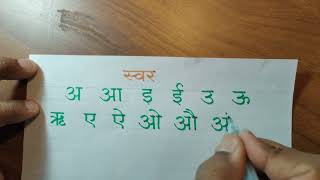 स्वर
अ आ इ ई उ ऊ
ऋ ए ऐ ओ औ अं